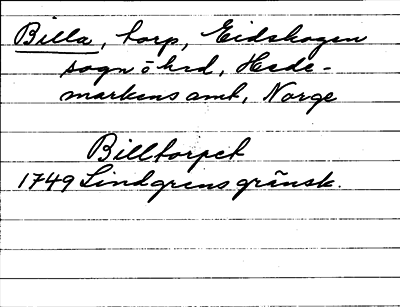 Billa, torp, Eidskogen
sogn o hrd, Hede-
markens amt, Norge
Billtorpet
1749 Lindgrens gränsk.